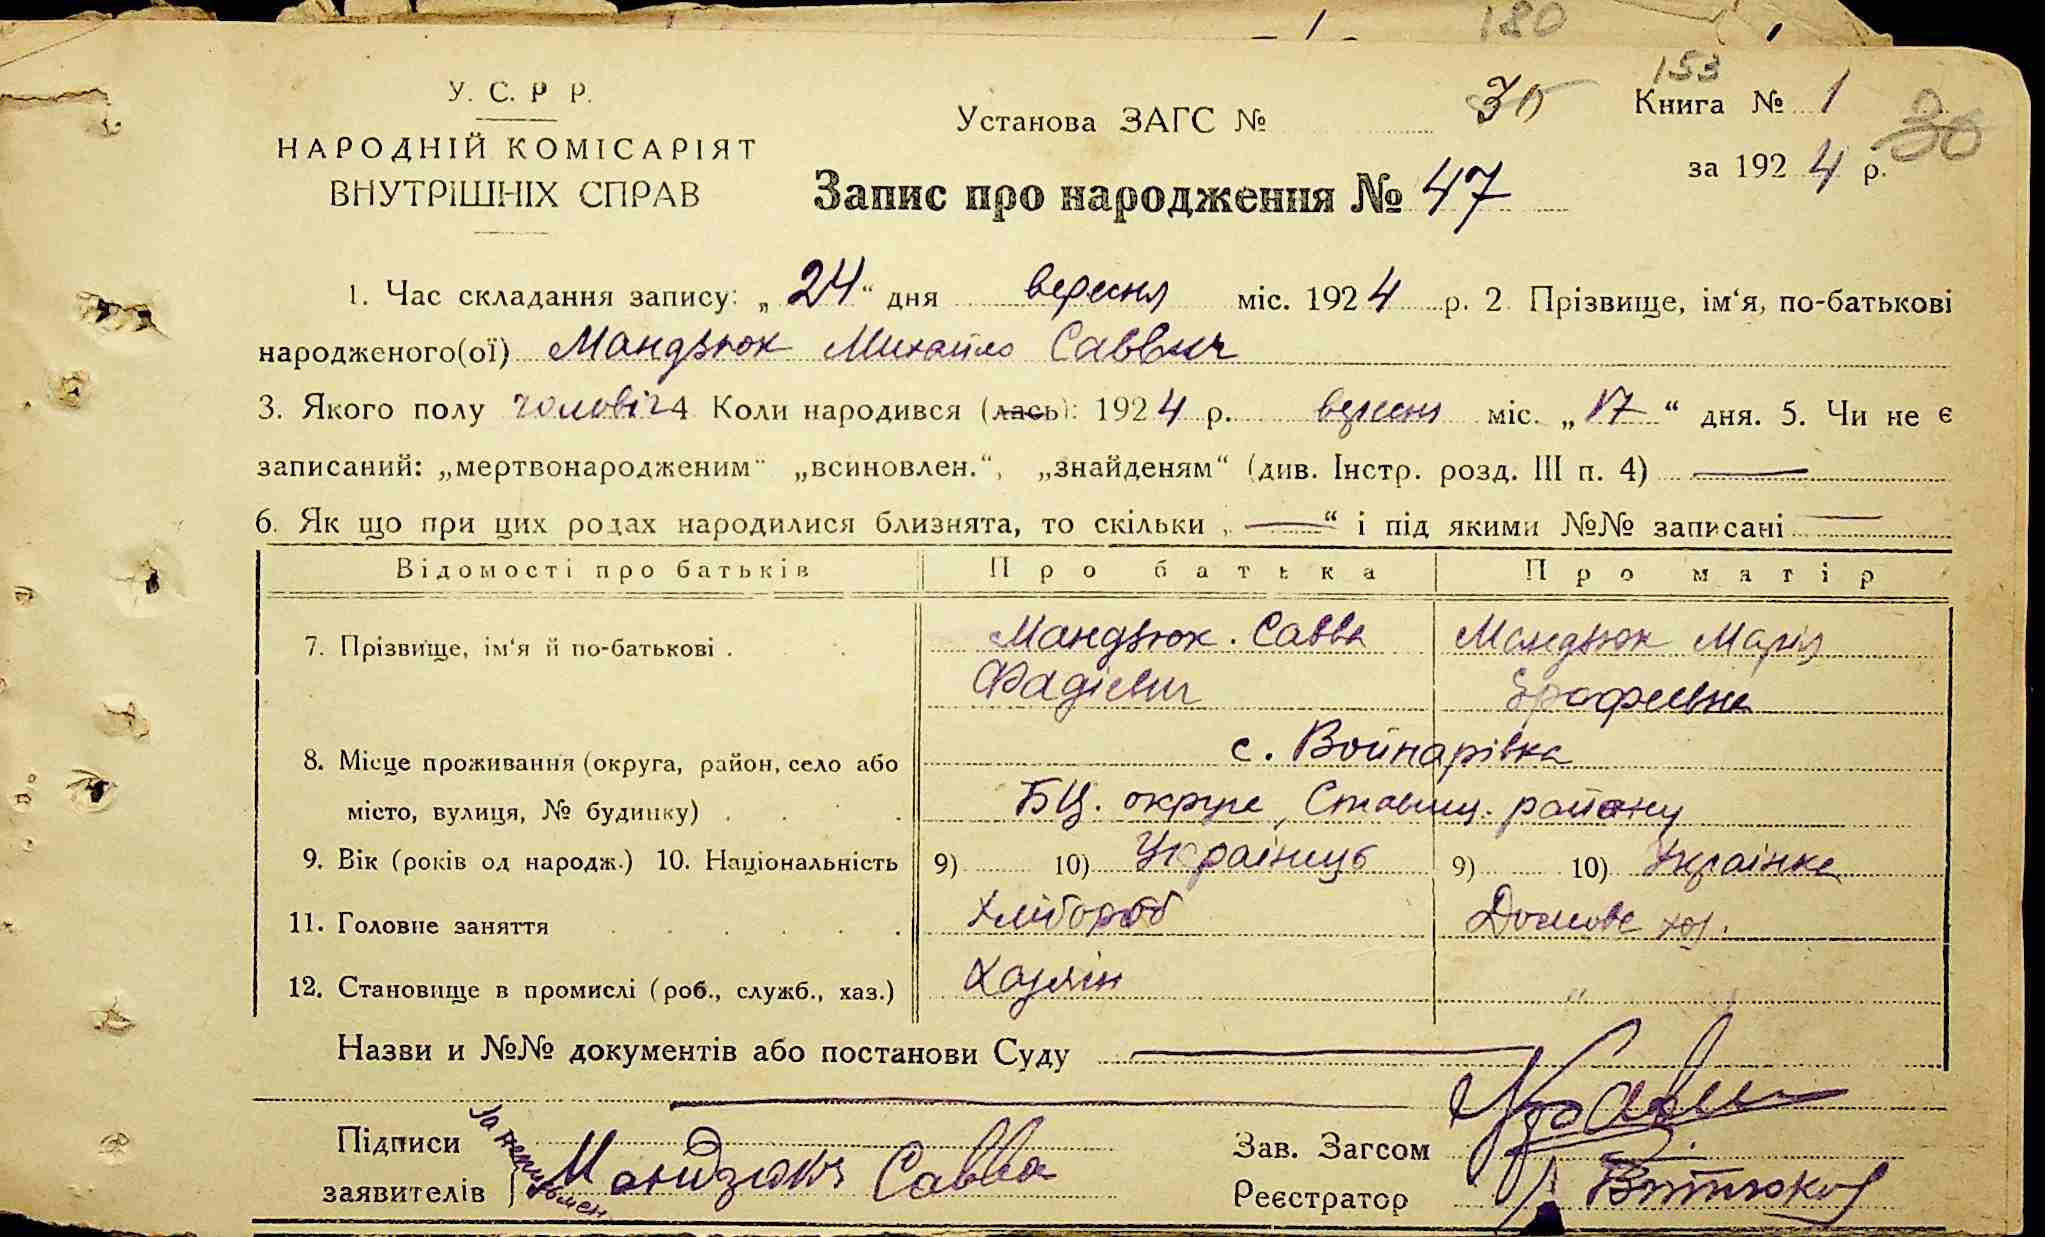 180
153
У. С. Р Р.
НАРОДНІЙ КОМІСАРІЯТ
ВНУТРІШНІХ СПРАВ
Установа ЗАГС №
Книга № 1
за 1924 р.
Запис про народження № 47
1. Час складання запису: „24“ дня вересня міс. 1924 р. 2. Прізвище, ім‘я, по-батькові
народженого(ої) Мандзюк Михайло Саввич
3. Якого полу чоловіч 4 Коли народився (лась): 1924 р. вересня міс. „17“ дня. 5. Чи не є
записаний: „мертвонародженим“ „всиновлен.“, „знайденям“ (див. Інстр. розд. III п. 4)
6. Як що при цих родах народилися близнята, то скільки „ — “ і під якими №№ записані —
Відомості про батьків Про батька Про матір
7. Прізвище, ім‘я й по-батькові . Мандзюк . Савва Мандзюк Марія
Фадієвич Єрофеевна
с. Войнарівка
8. Місце проживання (округа, район, село або
місто, вулиця, № будинку) БЦ. округе, Ставищ. району
9. Вік (років од народж.) 10. Національність 9) 10) Українець 9) 10) Українка
11. Головне заняття Хлібороб Домове хоз.
12. Становище в промислі (роб., служб., хаз.) Хазяін "
Назви и №№ документів або постанови Суду
Підписи
за неписьмен
заявителів Мандзюк Савва
Зав. Загсом
Реєстратор